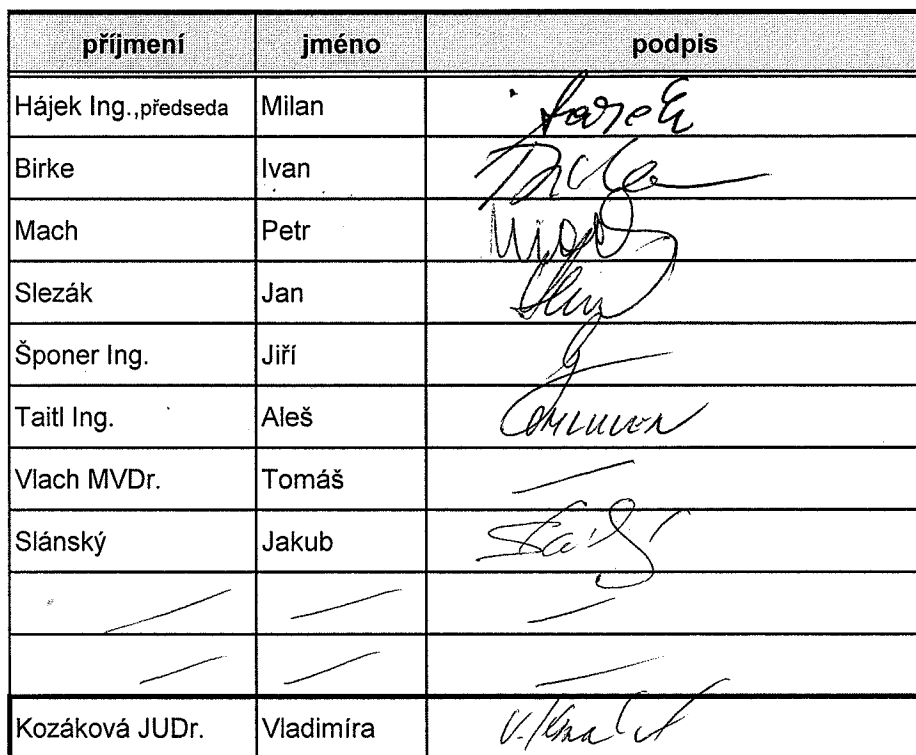 příjmení jméno podpis
Hájek Ing.,předseda Milan
Birke Ivan
Mach Petr
Slezák Jan
Šponer Ing. Jiří
Taitl Ing. Aleš OMLUVEN
Vlach MVDr. Tomáš
Slánský Jakub
Kozáková JUDr. Vladimíra